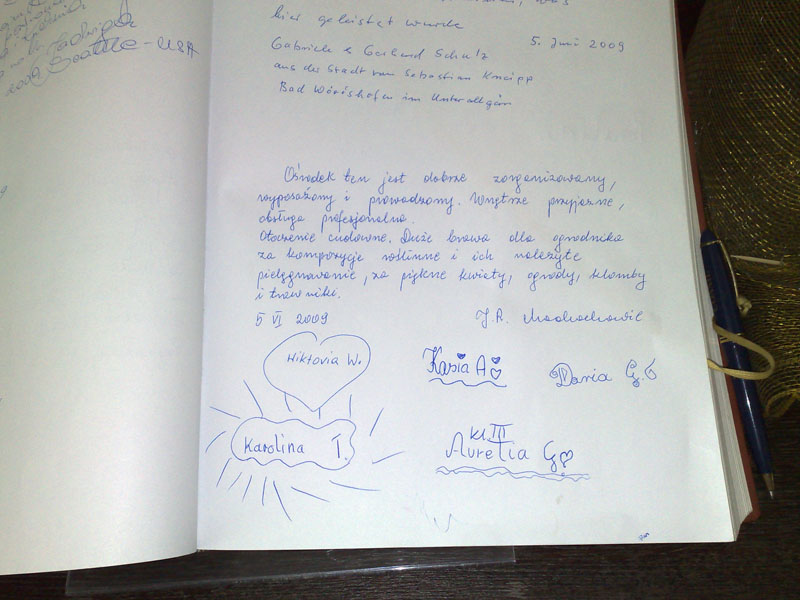 Seattle - USA
hier geleistet wurde
5. Juni 2009
Gabriele & Gerhard Schulz
aus der Stadt von Sebastian Kneipp
Bad Wörishofen im Unterallgäu
Ośrodek ten jest dobrze zorganizowany,
wyposażony i prowadzony. Wnętrze przyjazne,
obsługa profesjonalna.
Otoczenie cudowne. Duże brawa dla ogrodnika
za kompozycje roślinne i ich należyte
pielęgnowanie, za piękne kwiaty, ogrody, klomby
i trawniki.
5 VI 2009
J.R.
Wiktoria W.
Kasia A
Daria G.
Karolina T.
kl. III
Aurelia G